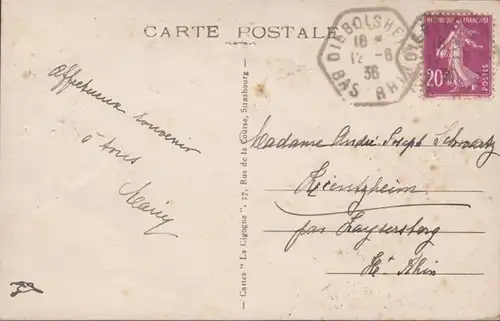 CARTE POSTALE
DIEBOLSHE
18 *
12 -6
36
BAS RHIN
DIE
RÉPUBLIQUE FRANÇAISE
20
POSTES
Affectueux souvenir
à tous
Cartes "La Cigogne", 37, Rue de la Course, Strasbourg
Madame André Joseph Schwartz
Kientzheim
par Kaysersberg
Ht Rhin